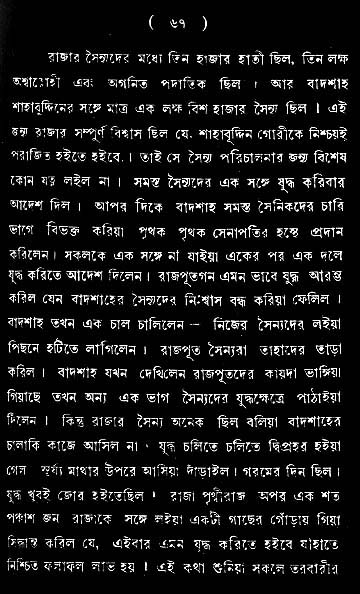 ( ৬৭ )
রাজার সৈন্যদের মধ্যে তিন হাজার হাতী ছিল, তিন লক্ষ
অশ্বারোহী এবং অগনিত পদাতিক ছিল । আর বাদশাহ
শাহাবুদ্দিনের সঙ্গে মাত্র এক লক্ষ বিশ হাজার সৈন্য ছিল । এই
জন্য রাজার সম্পুর্ণ বিশ্বাস ছিল যে, শাহাবুদ্দিন গোরীকে নিশ্চয়ই
পরাজিত হইতে হইবে । তাই সে সৈন্য পরিচালনার জন্য বিশেষ
কোন যত্ন লইল না । সমস্ত সৈন্যদের এক সঙ্গে যুদ্ধ করিবার
আদেশ দিল । আপর দিকে বাদশাহ সমস্ত সৈনিকদের চারি
ভাগে বিভক্ত করিয়া পৃথক পৃথক সেনাপতির হস্তে প্রদান
করিলেন । সকলকে এক সঙ্গে না যাইয়া একের পর এক দলে
যুদ্ধ করিতে আদেশ দিলেন । রাজপুতগন এমন ভাবে যুদ্ধ আরম্ভ
করিল যেন বাদশাহের সৈন্যদের নিঃশ্বাস বন্ধ করিয়া ফেলিল ।
বাদশাহ তখন এক চাল চালিলেন — নিজের সৈন্যদের লইয়া
পিছনে হটিতে লাগিলেন । রাজপূত সৈন্যরা তাহাদের তাড়া
করিল । বাদশাহ যখন দেখিলেন রাজপুতদের কায়দা ভাঙ্গিয়া
গিয়াছে তখন অন্য এক ভাগ সৈন্যদের যুদ্ধক্ষেত্রে পাঠাইয়া
দিলেন । কিন্তু রাজার সৈন্য অনেক ছিল বলিয়া বাদশাহের
চালাকি কাজে আসিল না । যুদ্ধ চলিতে চলিতে দ্বিপ্রহর হইয়া
গেল সূর্য্য মাথার উপরে আসিয়া দাঁড়াইল । গরমের দিন ছিল ।
যুদ্ধ খুবই জোর হইতেছিল । রাজা পৃথ্বীরাজ অপর এক শত
পঞ্চাশ জন রাজাকে সঙ্গে লইয়া একটী গাছের গোঁড়ায় গিয়া
সিদ্ধান্ত করিল যে, এইবার এমন যুদ্ধ করিতে হইবে যাহাতে
নিশ্চিত ফলাফল লাভ হয় । এই কথা শুনিয়া সকলে তরবারীর